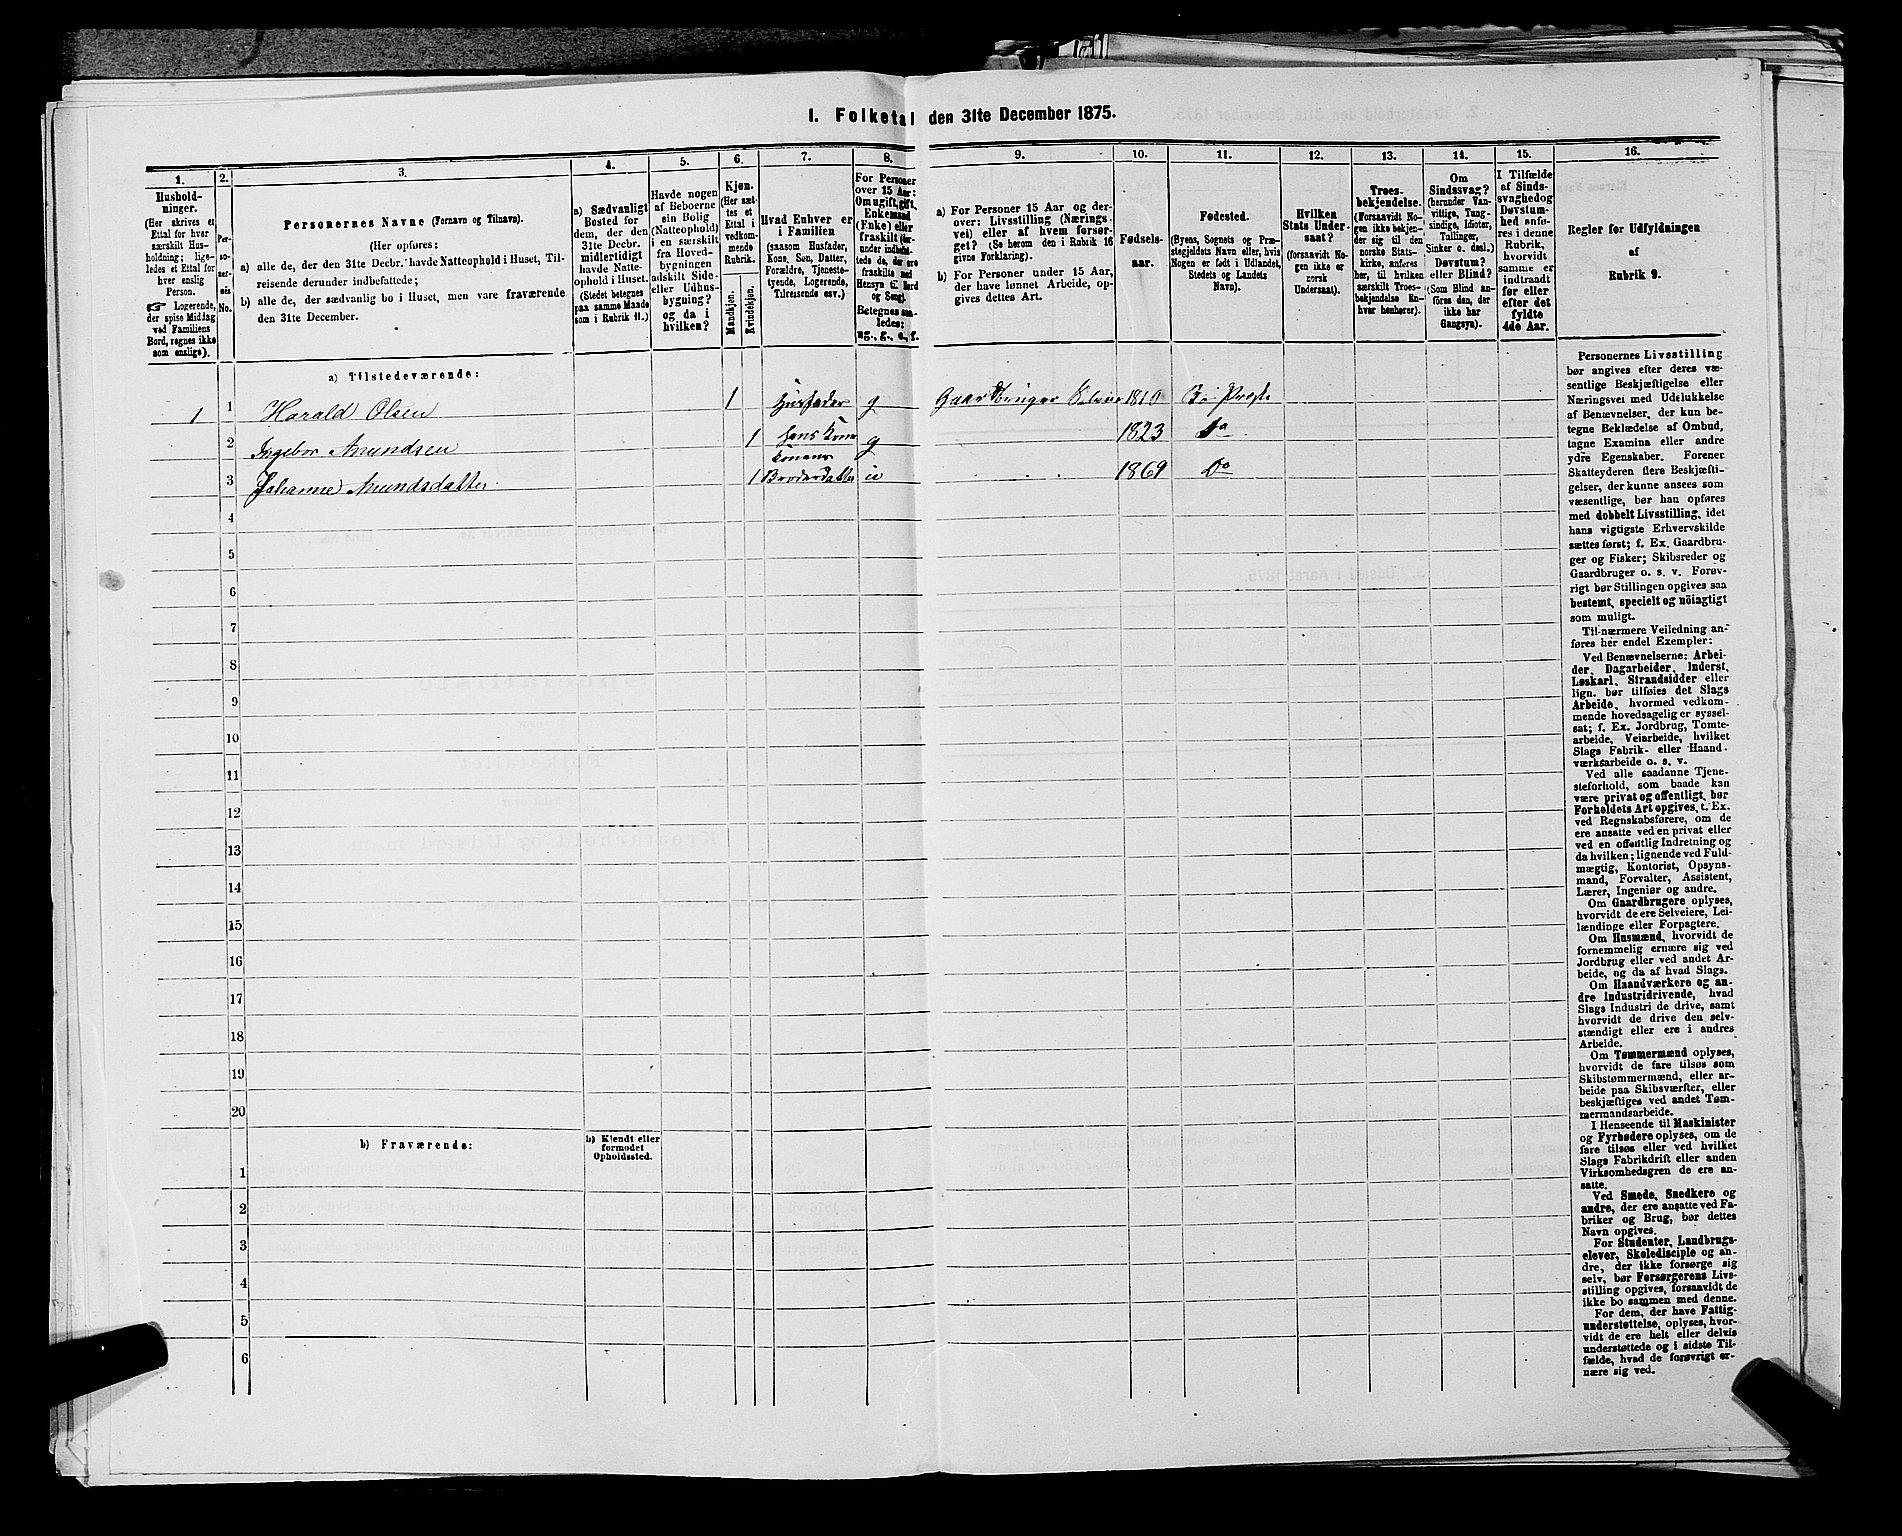 I. Folketal den 31te December 1875.
1. 2. 3. 4. 5. 6. 7. 8. 9. 10. 11. 12. 13. 14. 15. 16.
Hushold-
ninger.
(Her skrives et
Ettal for hver
særskilt Hus-
holdning; lige-
ledes et Ettal for
hver enslig
Person.
☞ Logerende,
der spise Middag
ved Familiens
Bord, regnes ikke
som enslige).
Per-
so-
ner-
nes
No.
Personernes Navne (Fornavn og Tilnavn).
(Her opføres:
a) alle de, der den 31te Decbr. havde Natteophold i Huset, Til-
reisende derunder indbefattede;
b) alle de, der sædvanlig bo i Huset, men vare fraværende
den 31te December.
a) Sædvanligt
Bosted for
dem, der den
31te Decbr.
midlertidigt
havde Natte-
ophold i Huset.
(Stedet betegnes
paa samme Maade
som i Rubrik 11.)
Havde nogen
af Beboerne
sin Bolig
(Natteophold)
i en særskilt
fra Hoved-
bygningen
adskilt Side-
eller Udhus-
bygning?
og da i
hvilken?
Kjøn.
(Her sæt-
tes et
Ettal i
vedkom-
mende
Rubrik.
Mandkjøn.
Kvindekjøn.
Hvad Enhver er
i Familien
(saasom Husfader,
Kone, Søn, Datter,
Forældre, Tjeneste-
tyende, Logerende,
Tilreisende osv.)
For Personer
over 15 Aar:
Om ugift, gift,
Enkemand
(Enke) eller
fraskilt (her-
under indbefat-
tede de, der ere
fraskilte med
Hensyn til Bord
og Seng).
Betegnes saa-
ledes:
ug., g., e., f.
a) For Personer 15 Aar og der-
over: Livsstilling (Nærings-
vei) eller af hvem forsør-
get? (Se herom den i Rubrik 16
givne Forklaring).
b) For Personer under 15 Aar,
der have lønnet Arbeide, op-
gives dettes Art.
Fødsels-
aar.
Fødested.
(Byens, Sognets og Præ-
stegjeldets Navn eller, hvis
Nogen er født i Udlandet,
Stedets og Landets
Navn).
Hvilken
Stats Under-
saat?
(forsaavidt No-
gen ikke er
norsk
Undersaat).
Troes-
bekjendelse.
(Forsaavidt No-
gen ikke bekjen-
der sig til den
norske Stats-
kirke, anføres
her, til hvilken
særskilt Troes-
bekjendelse En-
hver henhører).
Om
Sindssvag?
(herunder Van-
vittige, Tung-
sindige, Idioter,
Tullinger,
Sinker o. desl.)
Døvstum?
eller Blind?
(Som Blind an-
føres den, der
ikke har
Gangsyn).
I Tilfælde
af Sinds-
svaghed og
Døvstum-
hed anfø-
res i denne
Rubrik,
hvorvidt
samme er
indtraadt
før eller
efter det
fyldte
4de Aar.
Regler for Udfyldningen
af
Rubrik 9.
a) Tilstedeværende:
1 1 Harald Olsen 1 Husfader g Gaardbruger Selveier 1810 Bø Præste
2 Ingebor Amundsen 1 hans Kone g 1823 Do
3 Johanne Amundsdatter 1 Konens Broderdatter u 1869 Do
4
5
6
7
8
9
10
11
12
13
14
15
16
17
18
19
20
b) Fraværende:
b) Kjendt eller
formodet
Opholdssted.
1
2
3
4
5
6
Personernes Livsstilling
bør angives efter deres væ-
sentlige Beskjæftigelse eller
Næringsvei med Udelukkelse
af Benævnelser, der kun be-
tegne Beklædelse af Ombud,
tagne Examina eller andre
ydre Egenskaber. Forener
Skatteyderen flere Beskjæfti-
gelser, der kunne ansees som
væsentlige, bør han opføres
med dobbelt Livsstilling, idet
hans vigtigste Erhvervskilde
sættes først; f. Ex. Gaardbru-
ger og Fisker; Skibsreder og
Gaardbruger o. s. v. Forøv-
rigt bør Stillingen opgives saa
bestemt, specielt og nöiagtigt
som muligt.
Til nærmere Veiledning an-
føres her endel Exempler:
Ved Benævnelserne: Arbei-
der, Dagarbeider, Inderst,
Løskarl, Strandsidder eller
lign. bør tilføies det Slags
Arbeide, hvormed vedkom-
mende hovedsagelig er syssel-
sat; f. Ex. Jordbrug, Tomte-
arbeide, Veiarbeide, hvilket
Slags Fabrik- eller Haand-
værksarbeide o. s. v.
Ved alle saadanne Tjene-
steforhold, som baade kan
være privat og offentligt, bør
Forholdets Art opgives, t. Ex.
ved Regnskabsførere, om de
ere ansatte ved en privat eller
ved en offentlig Indretning og
da hvilken; lignende ved Fuld-
mægtig, Kontorist, Opsyns-
mand, Forvalter, Assistent,
Lærer, Ingeniør og andre.
Om Gaardbrugere oplyses,
hvorvidt de ere Selveiere, Lei-
lændinge eller Forpagtere.
Om Husmænd, hvorvidt de
fornemmelig ernære sig ved
Jordbrug eller ved andet Ar-
beide, og da af hvad Slags.
Om Haandværkere og an-
dre Industridrivende, hvad
Slags Industri de drive, samt
hvorvidt de drive den selv-
stændigt eller ere i andres
Arbeide.
Om Tømmermænd oplyses,
hvorvidt de fare tilsøs som
Skibstømmermænd, eller ar-
beide paa Skibsværfter, eller
beskjæftiges ved andet Tøm-
mermandsarbeide.
I Henseende til Maskinister
og Fyrbødere oplyses, om de
fare tilsøs eller ved hvilket
Slags Fabrikdrift eller anden
Virksomhedsgren de ere an-
satte.
Ved Smede, Snedkere og
andre, der ere ansatte ved Fa-
briker og Brug, bør dettes
Navn opgives.
For Studenter, Landbrugs-
elever, Skoledisciple og an-
dre, der ikke forsørge sig
selv, bør Forsørgerens Livs-
stilling opgives, forsaavidt de
ikke bo sammen med denne.
For dem, der have Fattig-
understøttelse, oplyses, hvor-
vidt de ere helt eller delvis
understøttede og i sidste Til-
fælde, hvad de forøvrigt er-
nære sig ved.